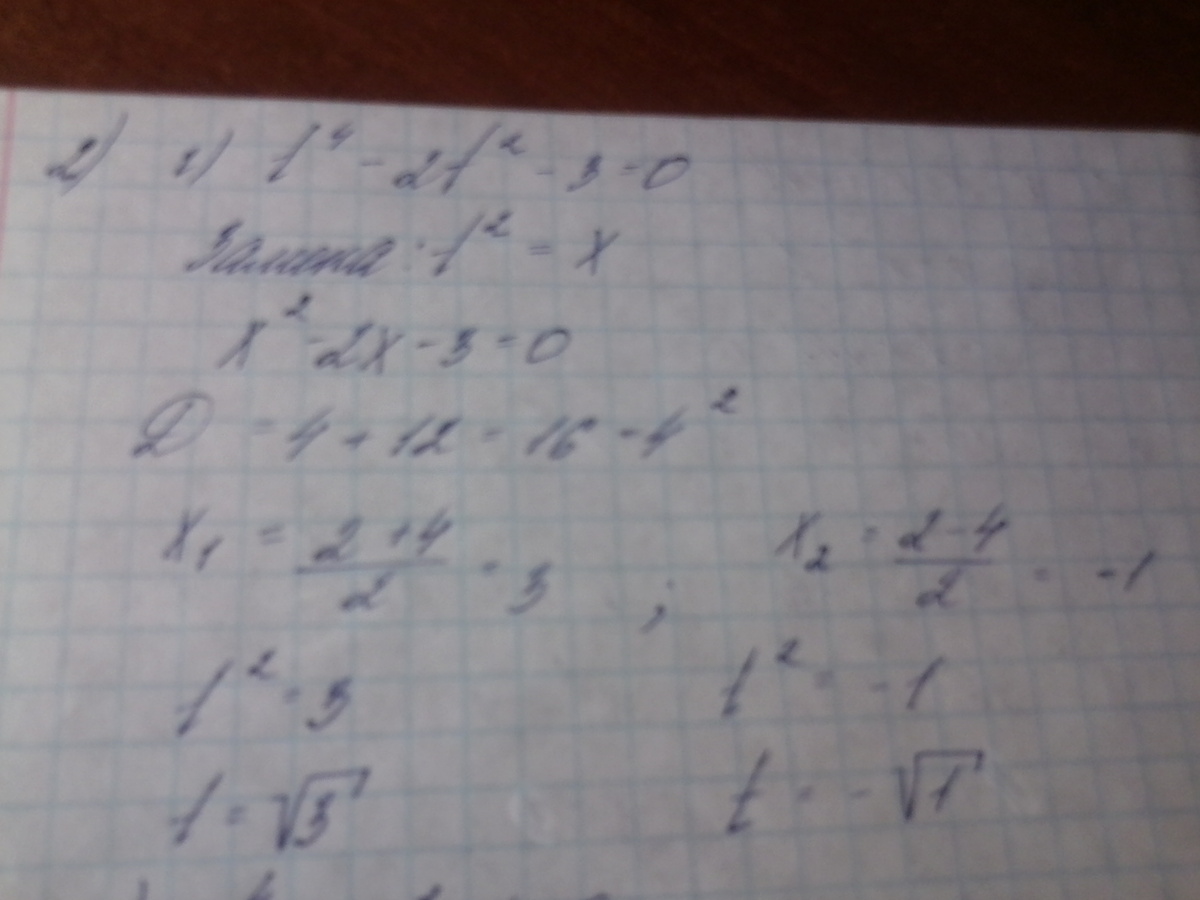 2) г) t⁴ - 2t² - 3 = 0
Замена: t² = x
x² - 2x - 3 = 0
D = 4 + 12 = 16 = 4²
x₁ = (2+4)/2 = 3 ; x₂ = (2-4)/2 = -1
t² = 3 t² = -1
t = √3 t = -√1